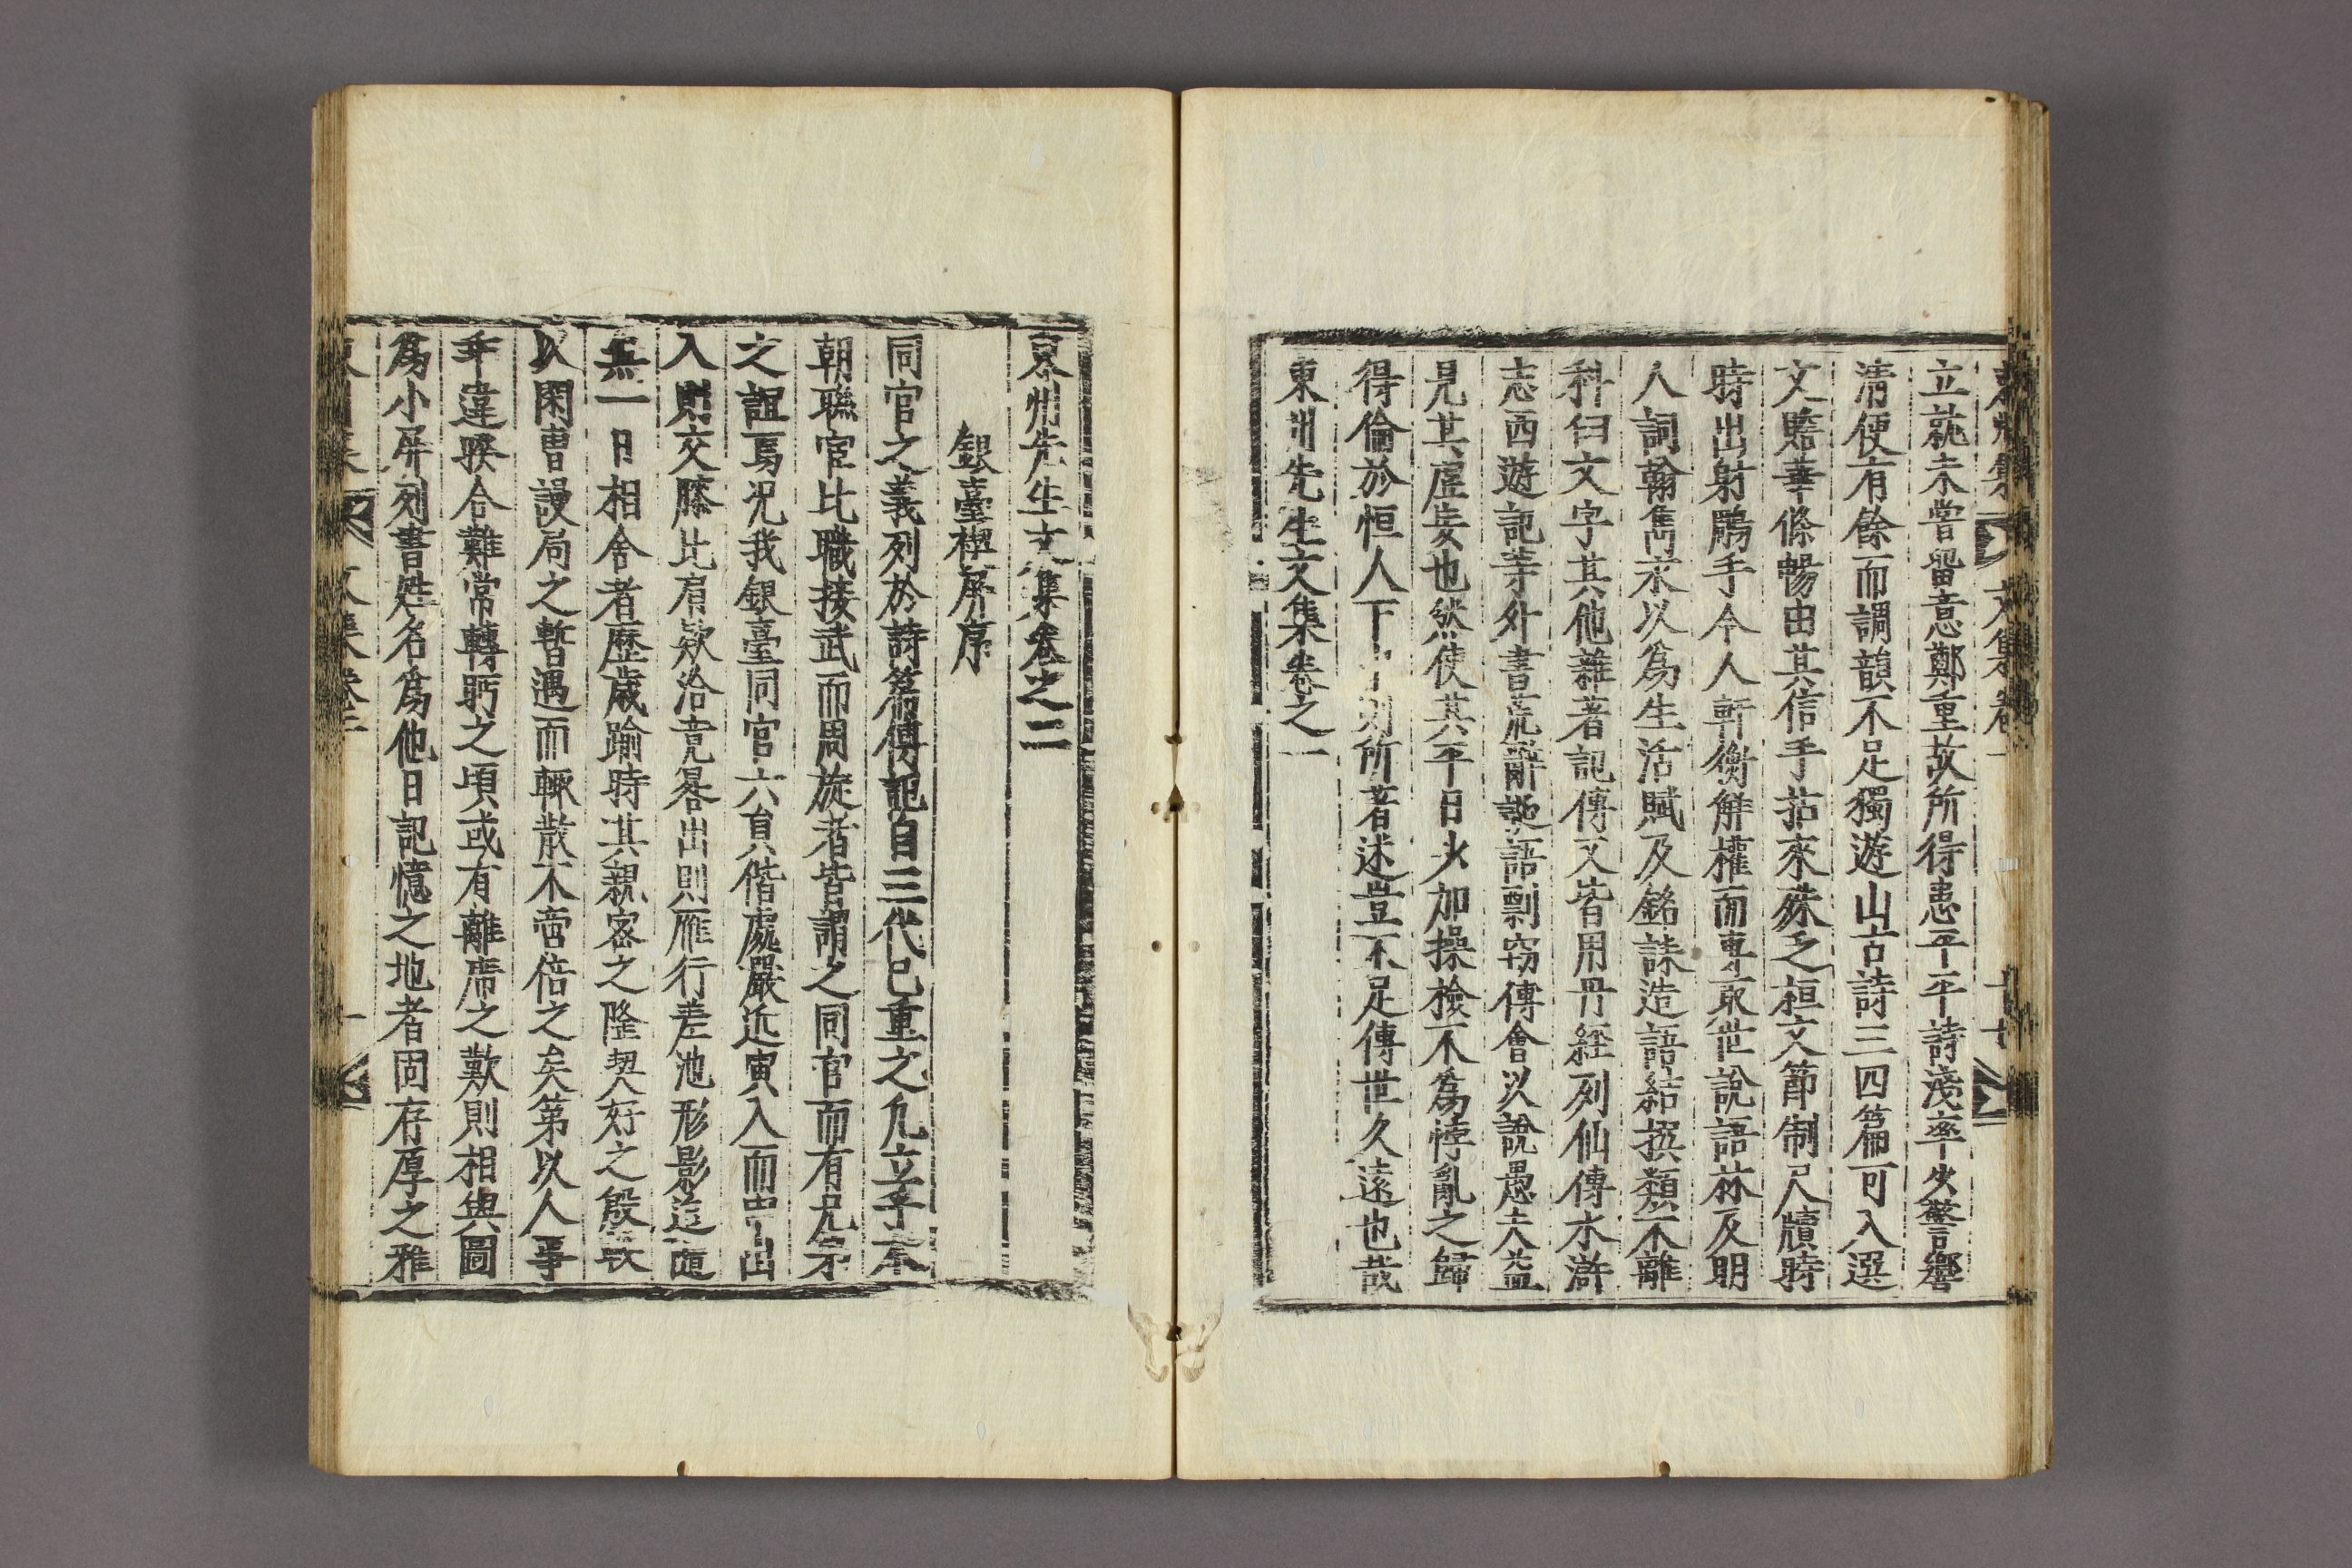 立就未嘗留意鄭重故所得患平平詩淺率少警響
清便有餘而調韻不足獨遊山古詩三四篇可入選
文贍華條暢由其信手拈來殊乏桓文節制尺牘時
時出射鵰手今人斬衡觧權而專取世說語林及明
人詞翰雋永以爲生活賦及銘誄造語結撰類不離
科臼文字其他雜著記傳又皆用丹經列仙傳水滸
志西遊記等外書荒辭謾語剽竊傳會以說愚夫益
見其虛妄也然使其平日少加操檢不爲悖亂之歸
得倫於恒人下中則所著述豈不足傳世久遠也哉
東州先生文集卷之一
東州先生文集卷之二
銀臺稧屛序
同官之義列於詩籍傳記自三代已重之凡立乎本
朝聯官比職接武而周旋者皆謂之同官而有兄弟
之誼焉况我銀臺同官六員偕處嚴近寅入而申出
入則交膝比肩欵洽竟晷出則雁行差池形影造隨
無一日相舍者歷歲踰時其親密之隆契好之殷
以閑曹謾局之暫遇而輒散不啻倍之矣第以人事
乖違睽合難常轉眄之頃或有離席之歎則相與圖
爲小屛列書姓名爲他日記憶之地者固存厚之雅
東州集 文集卷二 一